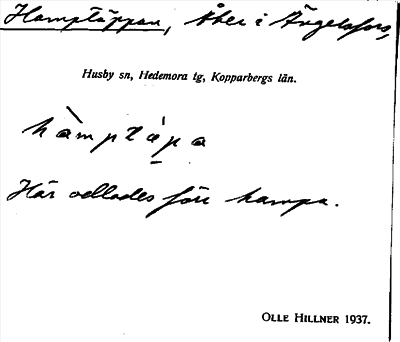 Hamptäppan, Åker i Ängelsfors,
Husby sn, Hedemora tg, Kopparbergs län.
hàmptäpa
Här odlades förr hampa.
OLLE HILLNER 1937.